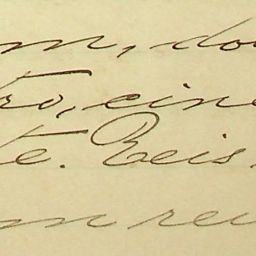 m, do
tro, eine
te. Reis
m rei